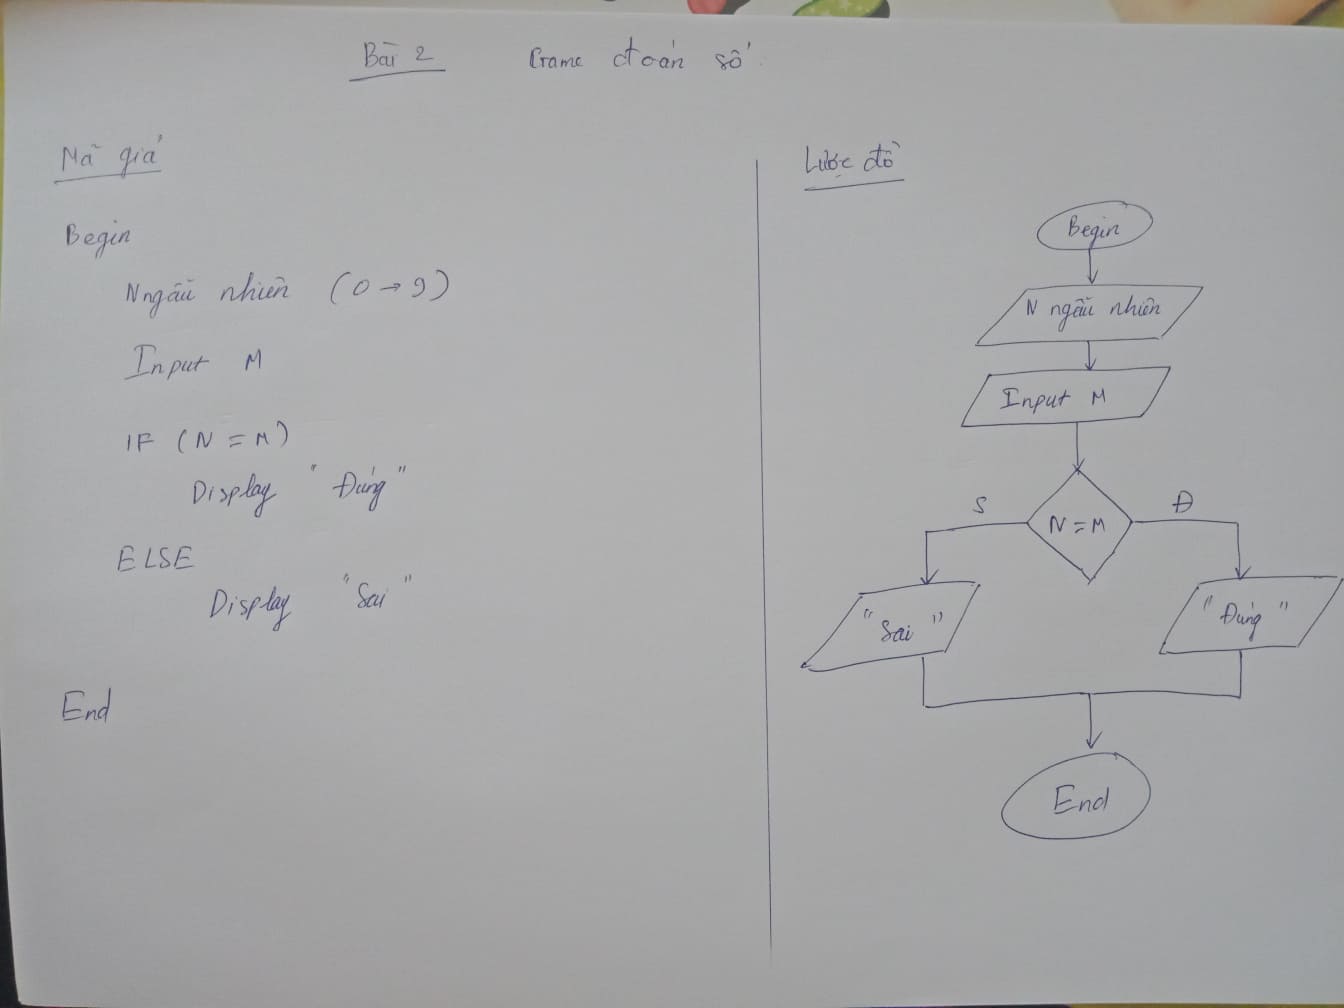 Bài 2 Game đoán số
Mã giả
Begin
N ngẫu nhiên (0→9)
Input M
IF (N = M)
Display "Đúng"
ELSE
Display "Sai"
End
Lược đồ
Begin
N ngẫu nhiên
Input M
N = M
S
Đ
"Sai"
"Đúng"
End